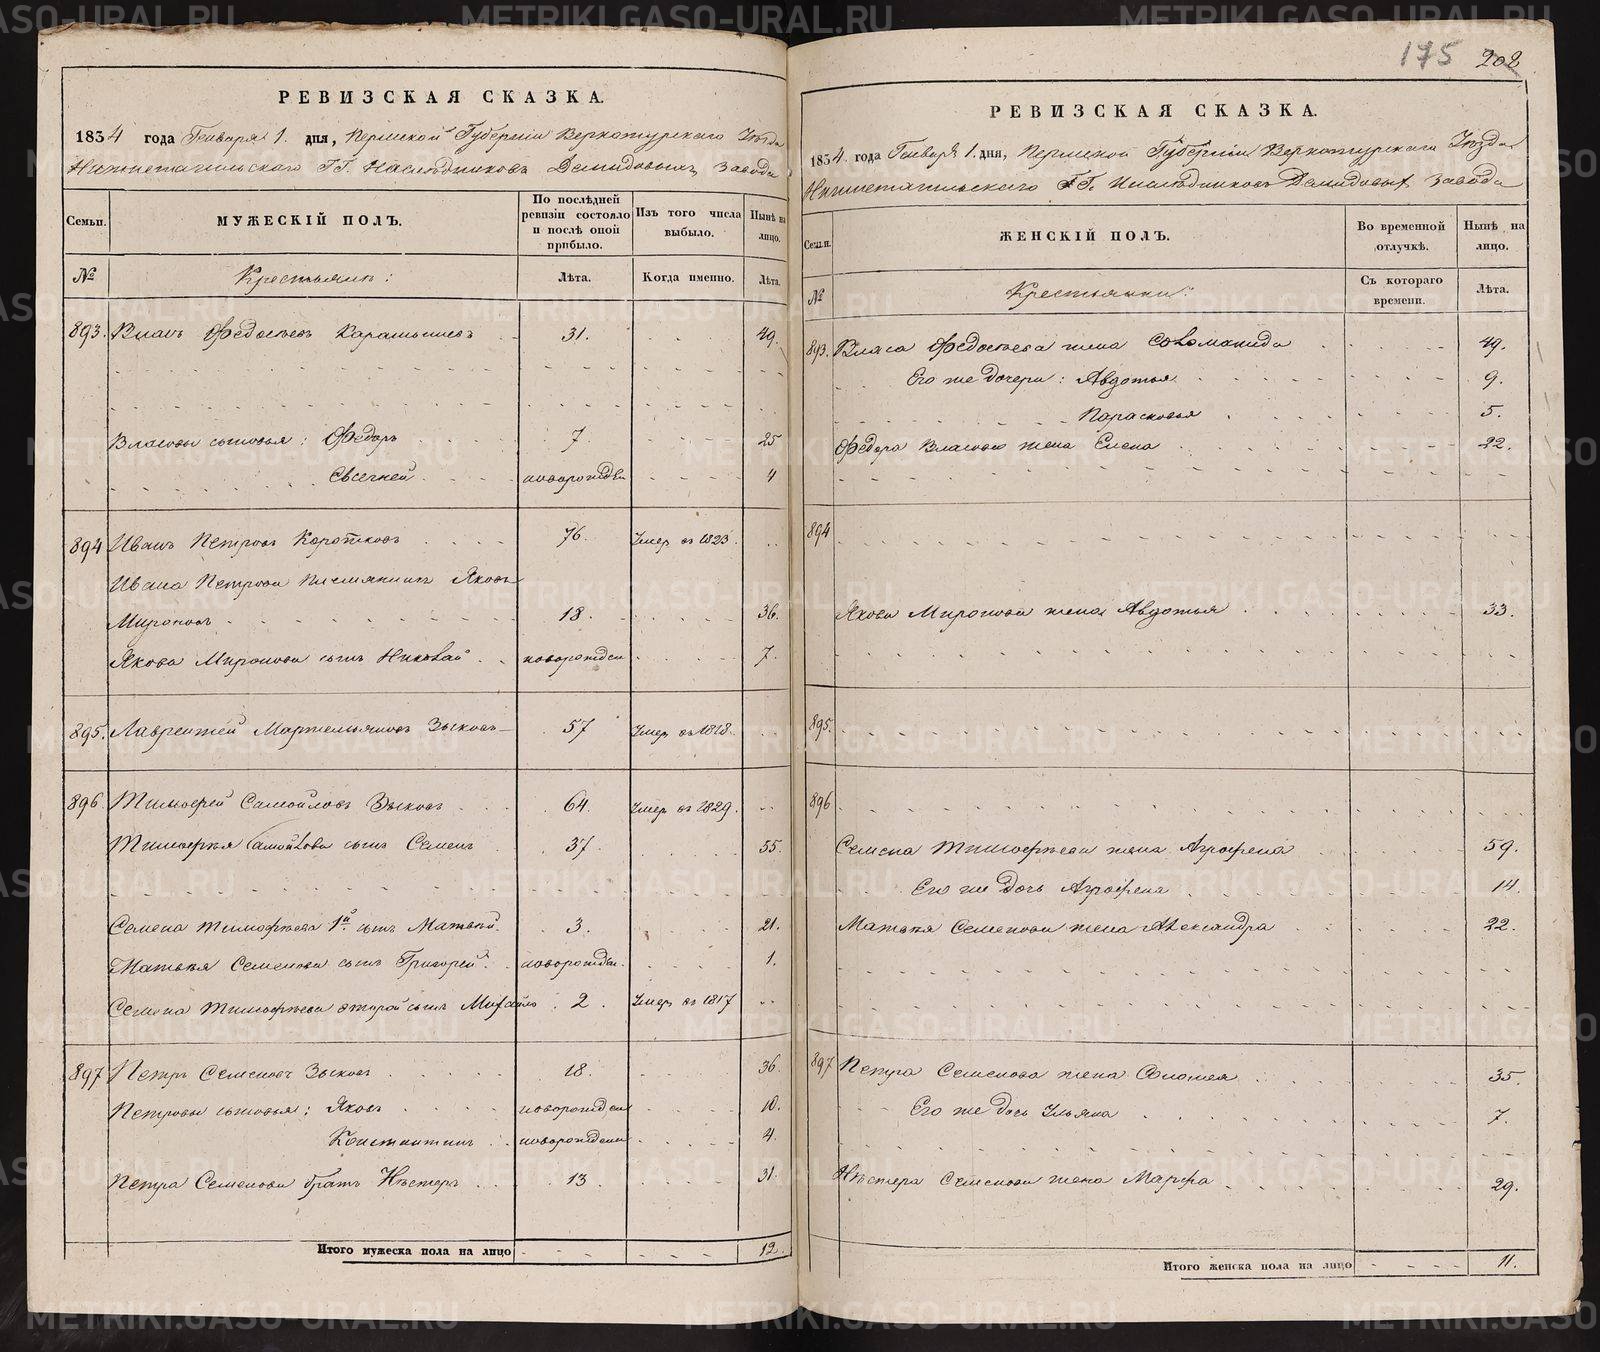 175 202
РЕВИЗСКАЯ СКАЗКА.
1834 года Генваря 1. дня, Пермской Губернии Верхотурскаго Уѣзда
Нижнетагильскаго ГГ. Наслѣдниковъ Демидовыхъ завода
Семьи. МУЖЕСКІЙ ПОЛЪ. По послѣдней ревизіи состояло и послѣ оной прибыло. Изъ того числа выбыло. Нынѣ на лицо.
№ Крестьянъ: Лѣта. Когда именно. Лѣта.
893. Власъ Федосѣевъ Карамышевъ 31. 49.
Власовы сыновья: Федоръ 7 25
Евсегней новорожден 4
894 Иванъ Петровъ Коротковъ 76. Умер въ 1823.
Ивана Петрова племянникъ Яковъ
Мироновъ 18. 36.
Якова Миронова сынъ Николай новорожден 7.
895. Лаврентей Мартемьяновъ Зыковъ 57 Умер въ 1818.
896. Тимофей Самойловъ Зыковъ 64. Умер въ 1829.
Тимофѣя Самойлова сынъ Семенъ 37. 55.
Семена Тимофѣева 1й. сынъ Матвѣй. 3. 21.
Матвѣя Семенова сынъ Григорей. новорожден. 1.
Семена Тимофѣева второй сынъ Михайло 2 Умер въ 1817
897 Петръ Семеновъ Зыковъ 18. 36.
Петровы сыновья: Яковъ новорожден 10.
Константинъ новорожден 4.
Петра Семенова братъ Нѣстеръ 13. 31.
Итого мужеска пола на лицо 12.
РЕВИЗСКАЯ СКАЗКА.
1834. года Генваря 1. дня, Пермской Губерніи Верхотурскаго Уѣзда
Нижнетагильскаго ГГ. Наслѣдниковъ Демидовыхъ завода
Семьи. ЖЕНСКІЙ ПОЛЪ. Во временной отлучкѣ. Нынѣ на лицо.
№ Крестьянки: Съ котораго времени. Лѣта.
893. Власа Федосѣева жена Соломанида 49.
Его же дочери: Авдотья 9.
Парасковья 5.
Федора Власова жена Елена 22.
894
Якова Миронова жена Авдотья 33.
895.
896
Семена Тимофѣева жена Агрофена 59.
Его же дочь Агрофена 14.
Матвѣя Семенова жена Александра 22.
897 Петра Семенова жена 35.
Его же дочь Ульяна 7.
Нѣстера Семенова жена Марфа 29.
Итого женска пола на лицо 11.
METRIKI.GASO-URAL.RU